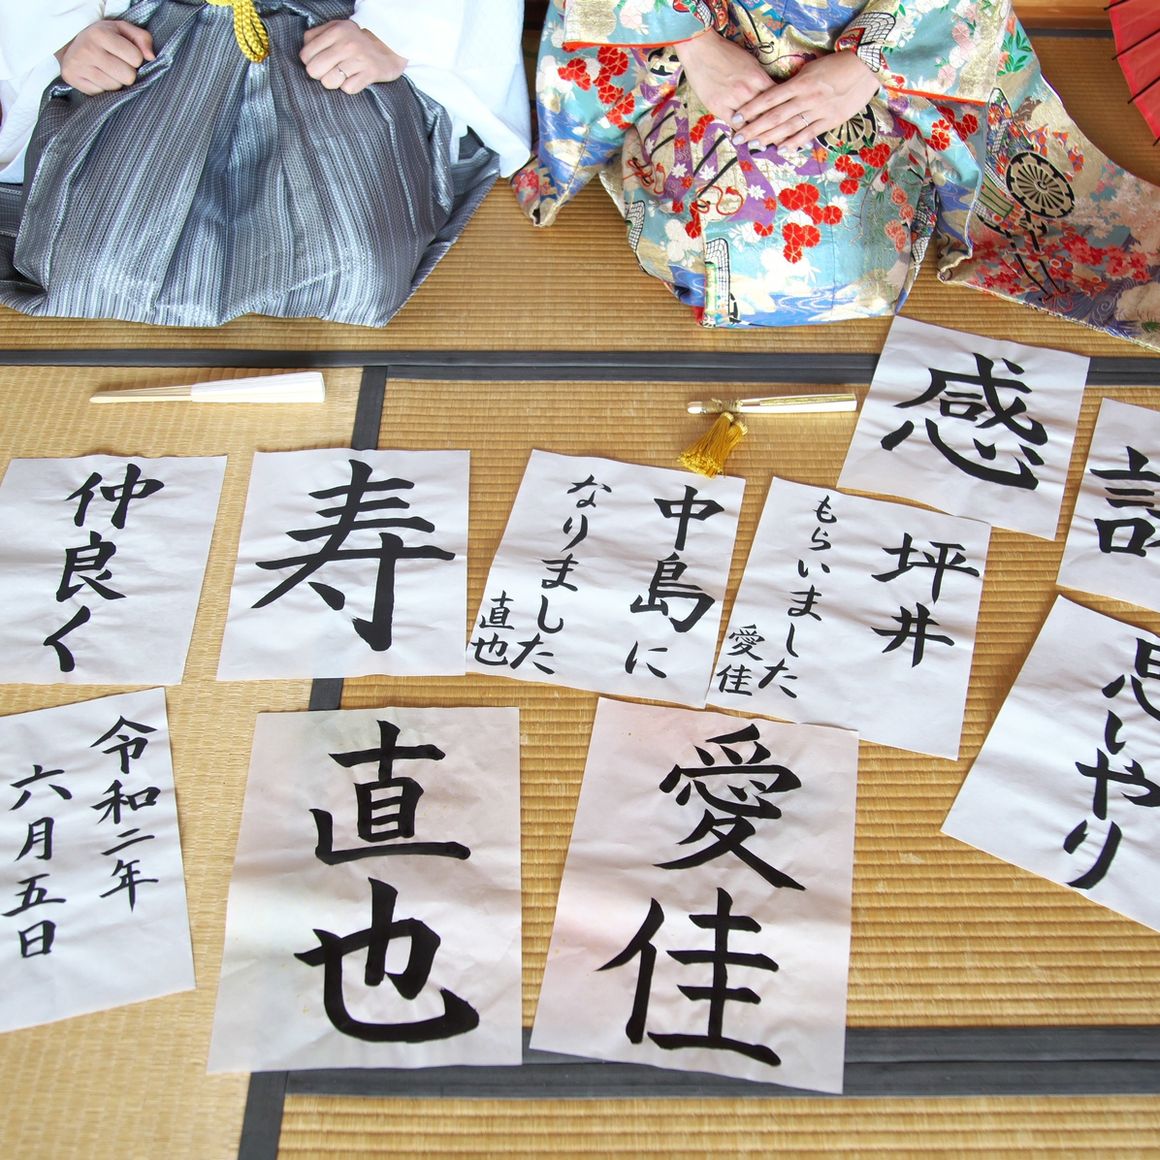 感
謝
仲良く
寿
中島に
なりました
直也
坪井
もらいました
愛佳
思いやり
令和二年
六月五日
直也
愛佳